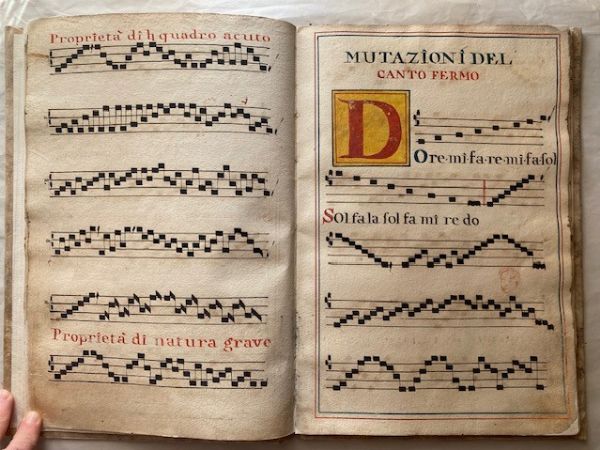 Proprietà di ♮ quadro acuto
Proprietà di natura grave
MUTAZIONI DEL
CANTO FERMO
DOre·mi·fa·re·mi·fa·ſol
Solfala ſol fa mi re do